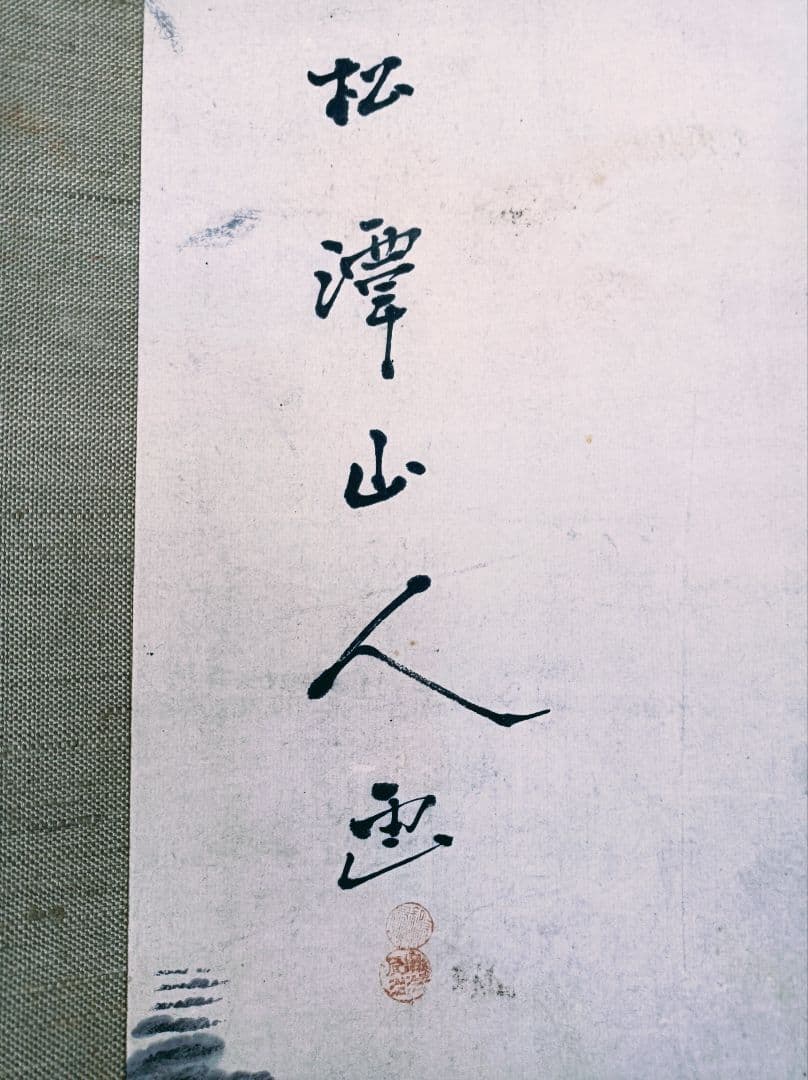 松潭山人画